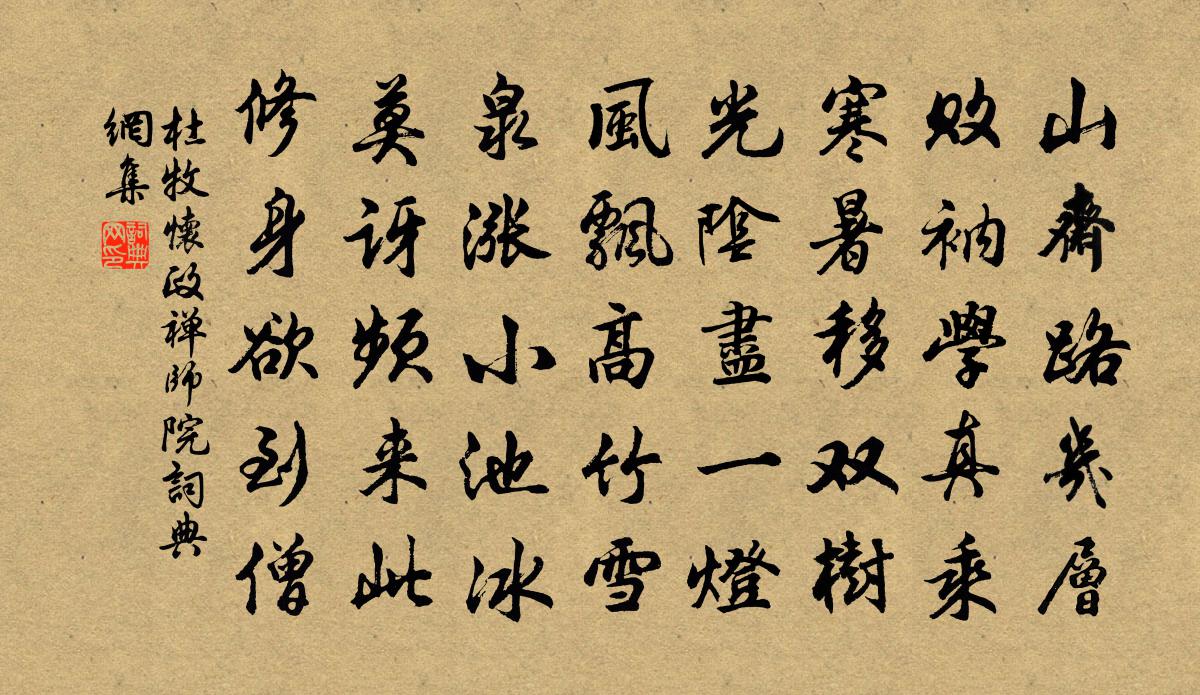 山齋路幾層
敗衲學真乘
寒暑移双樹
光陰盡一燈
風飄高竹雪
泉漲小池冰
莫訝頻来此
修身欲到僧
杜牧懷政禅師院詞典
網集
詞典网印